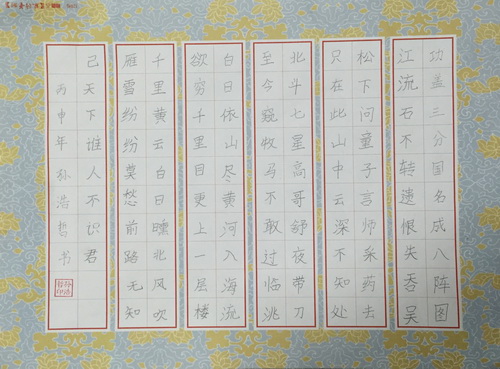 功盖三分国名成八阵图
江流石不转遗恨失吞吴
松下问童子言师采药去
只在此山中云深不知处
北斗七星高哥舒夜带刀
至今窥牧马不敢过临洮
白日依山尽黄河入海流
欲穷千里目更上一层楼
千里黄云白日曛北风吹
雁雪纷纷莫愁前路无知
己天下谁人不识君
丙申年孙浩哲书